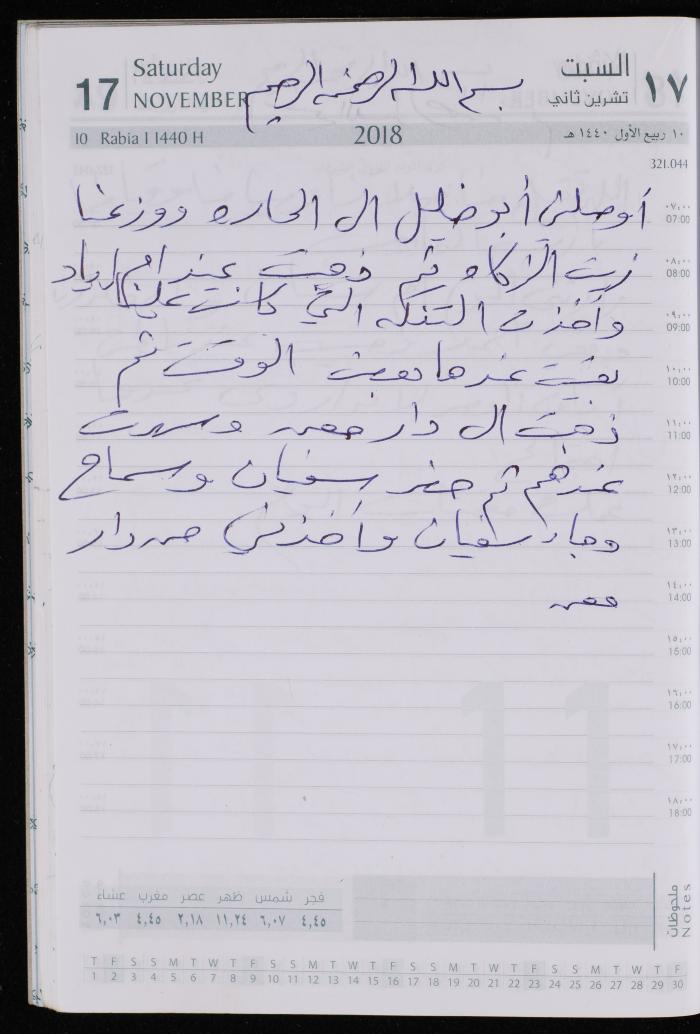 17
Saturday
NOVEMBER
بسم الله الرحمن الرحيم
السبت
تشرين ثاني
١٧
10 Rabia I 1440 H
2018
١٠ ربيع الأول ١٤٤٠ هـ
321.044
أوصلني أبو خليل الى الحاره ووزعنا
زيت الزكاه ثم ذهبت عند ام اياد
وأخذت التنكه التي كانت عليها
بقيت عندها بعض الوقت ثم
ذهبت الى دار معن وسهرت
عندهم ثم حضر سفيان وسماح
وجاء سفيان وأخذني من دار
معن
٠٧,٠٠
07:00
٠٨,٠٠
08:00
٠٩,٠٠
09:00
١٠,٠٠
10:00
١١,٠٠
11:00
١٢,٠٠
12:00
١٣,٠٠
13:00
١٤,٠٠
14:00
١٥,٠٠
15:00
١٦,٠٠
16:00
١٧,٠٠
17:00
١٨,٠٠
18:00
11
فجر شمس ظهر عصر مغرب عشاء
٤,٤٥ ٦,٠٧ ١١,٢٤ ٢,١٨ ٤,٤٥ ٦,٠٣
ملحوظات
Notes
T F S S M T W T F S S M T W T F S S M T W T F S S M T W T F
1 2 3 4 5 6 7 8 9 10 11 12 13 14 15 16 17 18 19 20 21 22 23 24 25 26 27 28 29 30